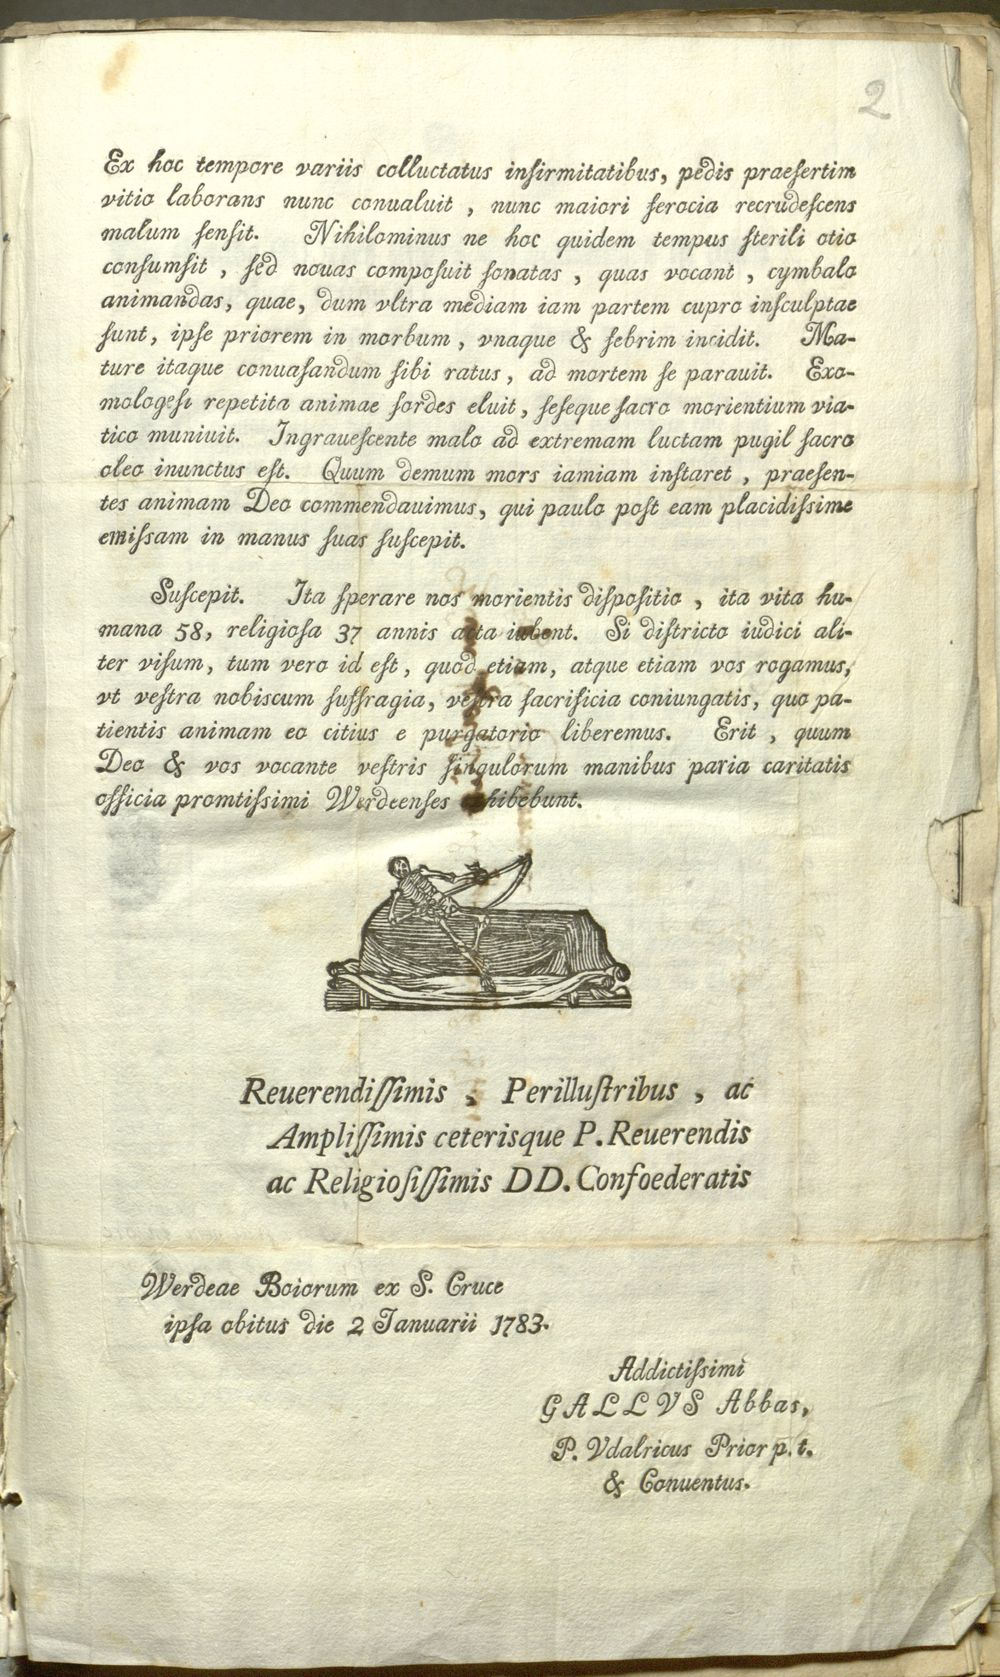 2
Ex hoc tempore variis colluctatus infirmitatibus, pedis praeſertim
vitio laborans nunc conualuit , nunc maiori ferocia recrudeſcens
malum ſenſit. Nihilominus ne hoc quidem tempus ſterili otio
conſumſit , ſed nouas compoſuit ſonatas , quas vocant , cymbalo
animandas, quae, dum vltra mediam iam partem cupro inſculptae
ſunt, ipſe priorem in morbum , vnaque & febrim incidit. Ma-
ture itaque conuaſandum ſibi ratus, ad mortem ſe parauit. Exo-
mologeſi repetita animae ſordes eluit, ſeſeque ſacro morientium via-
tico muniuit. Ingraueſcente malo ad extremam luctam pugil ſacro
oleo inunctus eſt. Quum demum mors iamiam inſtaret , praeſen-
tes animam Deo commendauimus, qui paulo poſt eam placidiſſime
emiſſam in manus ſuas ſuſcepit.
Suſcepit. Ita ſperare nos morientis diſpoſitio , ita vita hu-
mana 58, religioſa 37 annis acta iubent. Si diſtricto iudici ali-
ter viſum, tum vero id eſt, quod etiam, atque etiam vos rogamus,
vt veſtra nobiscum ſuffragia, veſtra ſacrificia coniungatis, quo pa-
tientis animam eo citius e purgatorio liberemus. Erit , quum
Deo & vos vocante veſtris ſingulorum manibus paria caritatis
officia promtiſſimi Werdeenſes exhibebunt.
Reuerendiſſimis , Perilluſtribus , ac
Ampliſſimis ceterisque P. Reuerendis
ac Religioſiſſimis DD. Confoederatis
Werdeae Boiorum ex S. Cruce
ipſa obitus die 2 Ianuarii 1783.
Addictiſſimi
GALLVS Abbas,
P. Vdalricus Prior p. t.
& Conuentus.